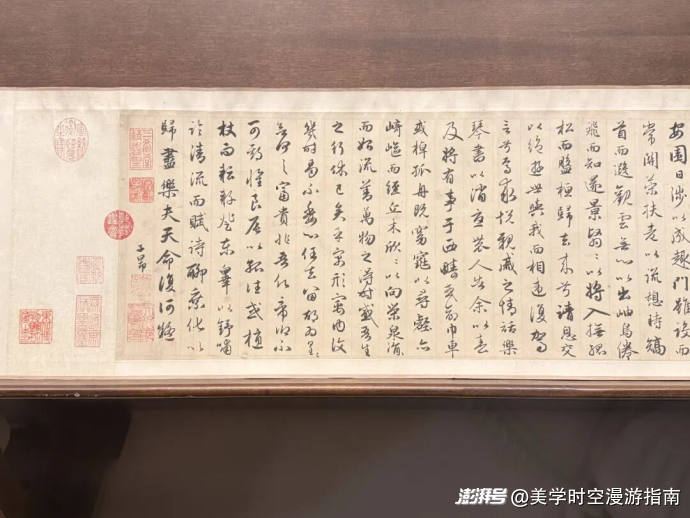 安園日涉以成趣門雖設而
常關策扶老以流憩時矯
首而遐觀雲無心以出岫鳥倦
飛而知還景翳〻以將入撫孤
松而盤桓歸去來兮請息交
以絕遊世與我而相遺復駕
言兮焉求悅親戚之情話樂
琴書以消憂農人告余以春
及將有事于西疇或命巾車
或棹孤舟既窈窕以尋壑亦
崎嶇而經丘木欣〻以向榮泉涓〻
而始流善萬物之得時感吾生
之行休已矣乎寓形宇內復
幾時曷不委心任去留胡為遑〻
兮何之富貴非吾願帝鄉不
可期懷良辰以孤往或植
杖而耘耔登東皋以舒嘯
臨清流而賦詩聊乘化以
歸盡樂夫天命復何疑
子昂
澎湃号@美学时空漫游指南